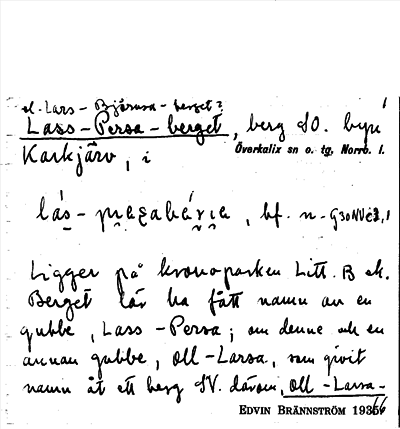 el. Lars-Björnsa-berget?
Lass-Persa-berget, berg SO. byn
Karkjärv, i Överkalix sn o. tg, Norrb. l.
bf. n-
Ligger på kronoparken Litt. B ek.
Berget lär ha fått namn av en
gubbe, Lass-Persa; om denne och en
annan gubbe, Oll-Larsa, som givit
namn åt ett berg SV. därom, Oll-Larsa-
EDVIN BRÄNNSTRÖM 193